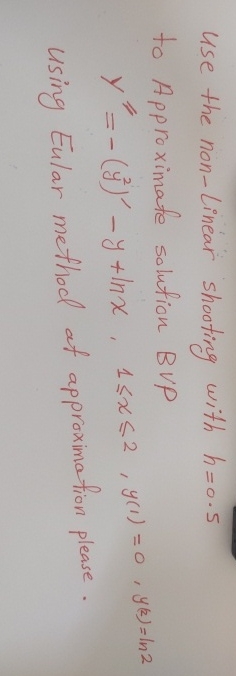 use the non-Linear shooting with h=0.5
to Approximate solution BVP
y" = -(y²)' - y + ln x , 1 ≤ x ≤ 2 , y(1) = 0 , y(2) = ln 2
using Eular method at approximation please .